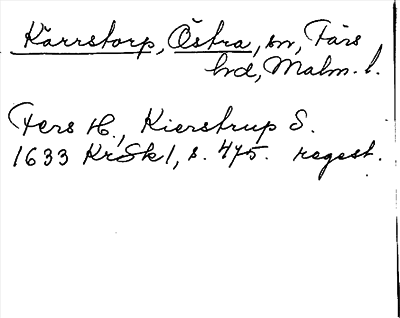 Kärrstorp, Östra, sn, Färs
hd, Malm. l.
Fers H., Kierstrup S.
1633 KrSk1, s. 475. regest.